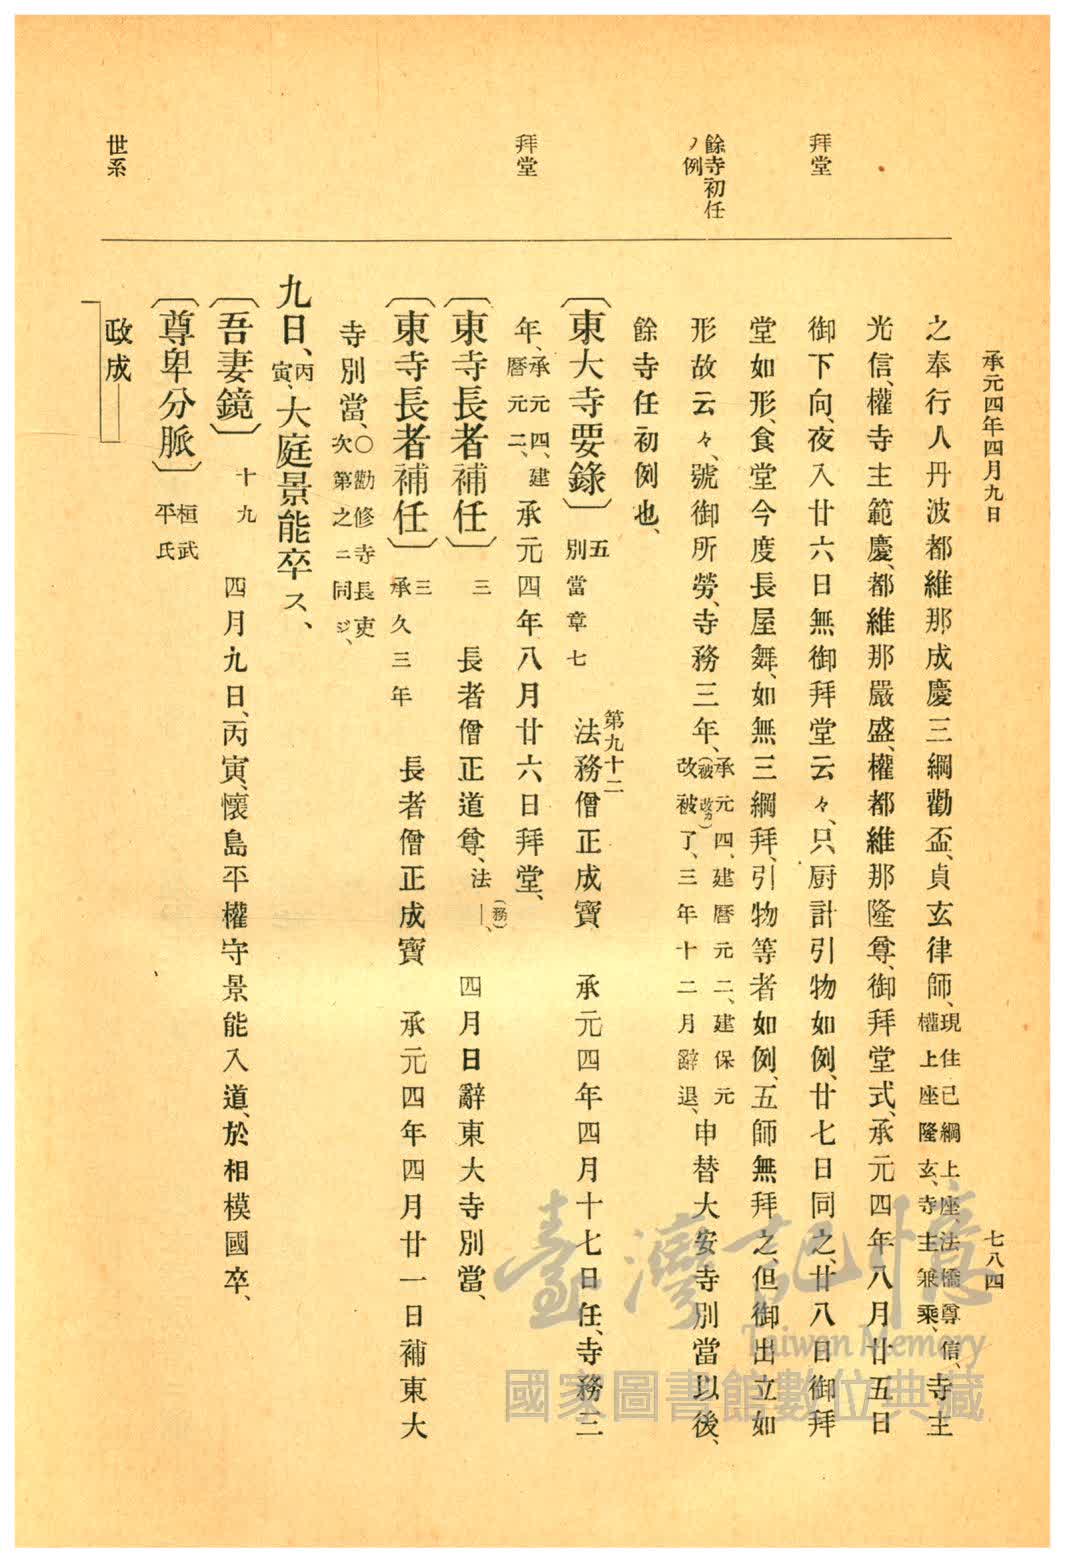 承元四年四月九日
七八四
拜堂
餘寺初任
ノ例
拜堂
世系
之奉行人丹波都維那成慶三綱勸盃、貞玄律師、現住已綱上座法橋尊信、寺主
權上座隆玄、寺主兼乘、
光信、權寺主範慶、都維那嚴盛、權都維那隆尊、御拜堂式、承元四年八月廿五日
御下向、夜入廿六日無御拜堂云々、只厨計引物如例、廿七日同之、廿八日御拜
堂如形、食堂今度長屋舞、如無三綱拜、引物等者如例、五師無拜之、但御出立如
形故云々、號御所勞、寺務三年、承元四、建曆元二、建保元
改(被改カ)被了、三年十二月辭退、申替大安寺別當以後、
餘寺任初例也、
〔東大寺要錄〕五
別當章七 第九十二
法務僧正成寶 承元四年四月十七日任、寺務三
年、承元四、建
曆元二、承元四年八月廿六日拜堂、
〔東寺長者補任〕三 長者僧正道尊、法(務)—、 四月日辭東大寺別當、
〔東寺長者補任〕三
承久三年 長者僧正成寶 承元四年四月廿一日補東大
寺別當、○勸修寺長吏
次第之ニ同ジ、
九日、丙
寅、大庭景能卒ス、
〔吾妻鏡〕十九 四月九日、丙寅、懷島平權守景能入道、於相模國卒、
〔尊卑分脈〕桓武
平氏
政成
臺灣記憶
Taiwan Memory
國家圖書館數位典藏